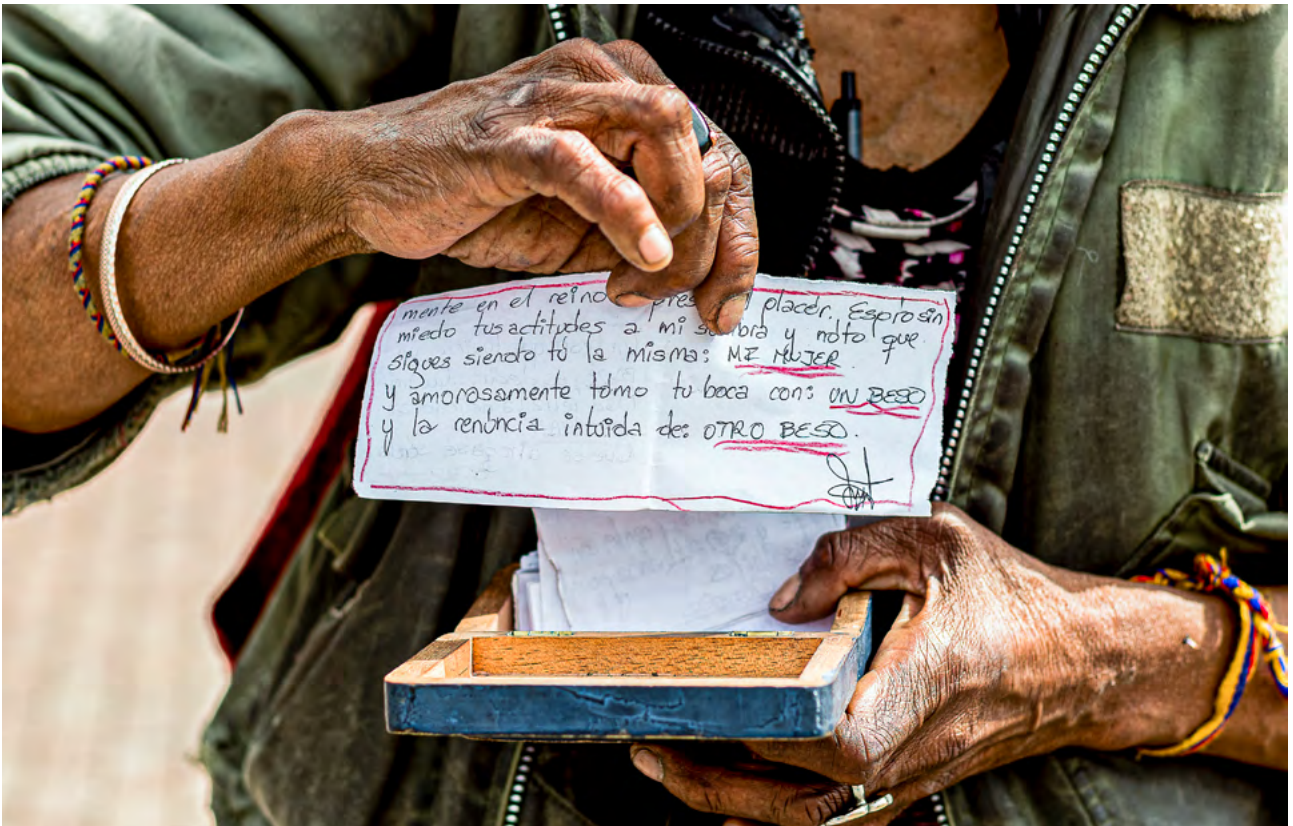 mente en el reino pres placer. Espío sin
miedo tus actitudes a mi s bra y noto que
sigues siendo tú la misma: MI MUJER
y amorosamente tomo tu boca con: UN BESO
y la renuncia intuida de: OTRO BESO.